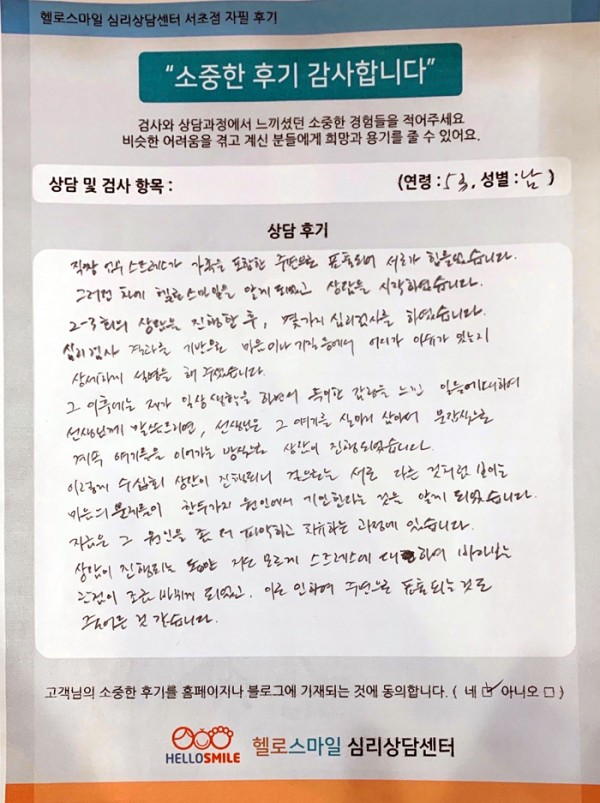 헬로스마일 심리상담센터 서초점 자필 후기
“소중한 후기 감사합니다”
검사와 상담과정에서 느끼셨던 소중한 경험들을 적어주세요
비슷한 어려움을 겪고 계신 분들에게 희망과 용기를 줄 수 있어요.
상담 및 검사 항목 : (연령 : 53, 성별 : 남 )
상담 후기
직장 업무 스트레스가 가족을 포함한 주변으로 표출되어 서로가 힘들었습니다.
그러던 차에 헬로스마일을 알게 되었고 상담을 시작하였습니다.
2-3회의 상담을 진행한 후, 몇가지 심리검사를 하였습니다.
심리검사 결과를 기반으로 마음이나 기질 등에서 어디가 이슈가 있는지
상세하게 설명을 해 주셨습니다.
그 이후에는 제가 일상생활을 하면서 특이한 감정을 느낀 일들에 대하여
선생님께 말씀드리면, 선생님은 그 얘기를 실마리 삼아서 문답식으로
계속 얘기들을 이어가는 방식으로 상담이 진행되었습니다.
이렇게 수십회 상담이 진행되니 겉으로는 서로 다른 것처럼 보이는
마음의 문제들이 한두가지 원인에서 기인한다는 것을 알게 되었습니다.
지금은 그 원인을 좀 더 파악하고 치유하는 과정에 있습니다.
상담이 진행되는 동안 저도 모르게 스트레스에 대하여 바라보는
관점이 조금 바뀌게 되었고, 이로 인하여 주변으로 표출되는 것도
줄어든 것 같습니다.
고객님의 소중한 후기를 홈페이지나 블로그에 기재되는 것에 동의합니다. ( 네 ☑ 아니오 □ )
HELLOSMILE 헬로스마일 심리상담센터